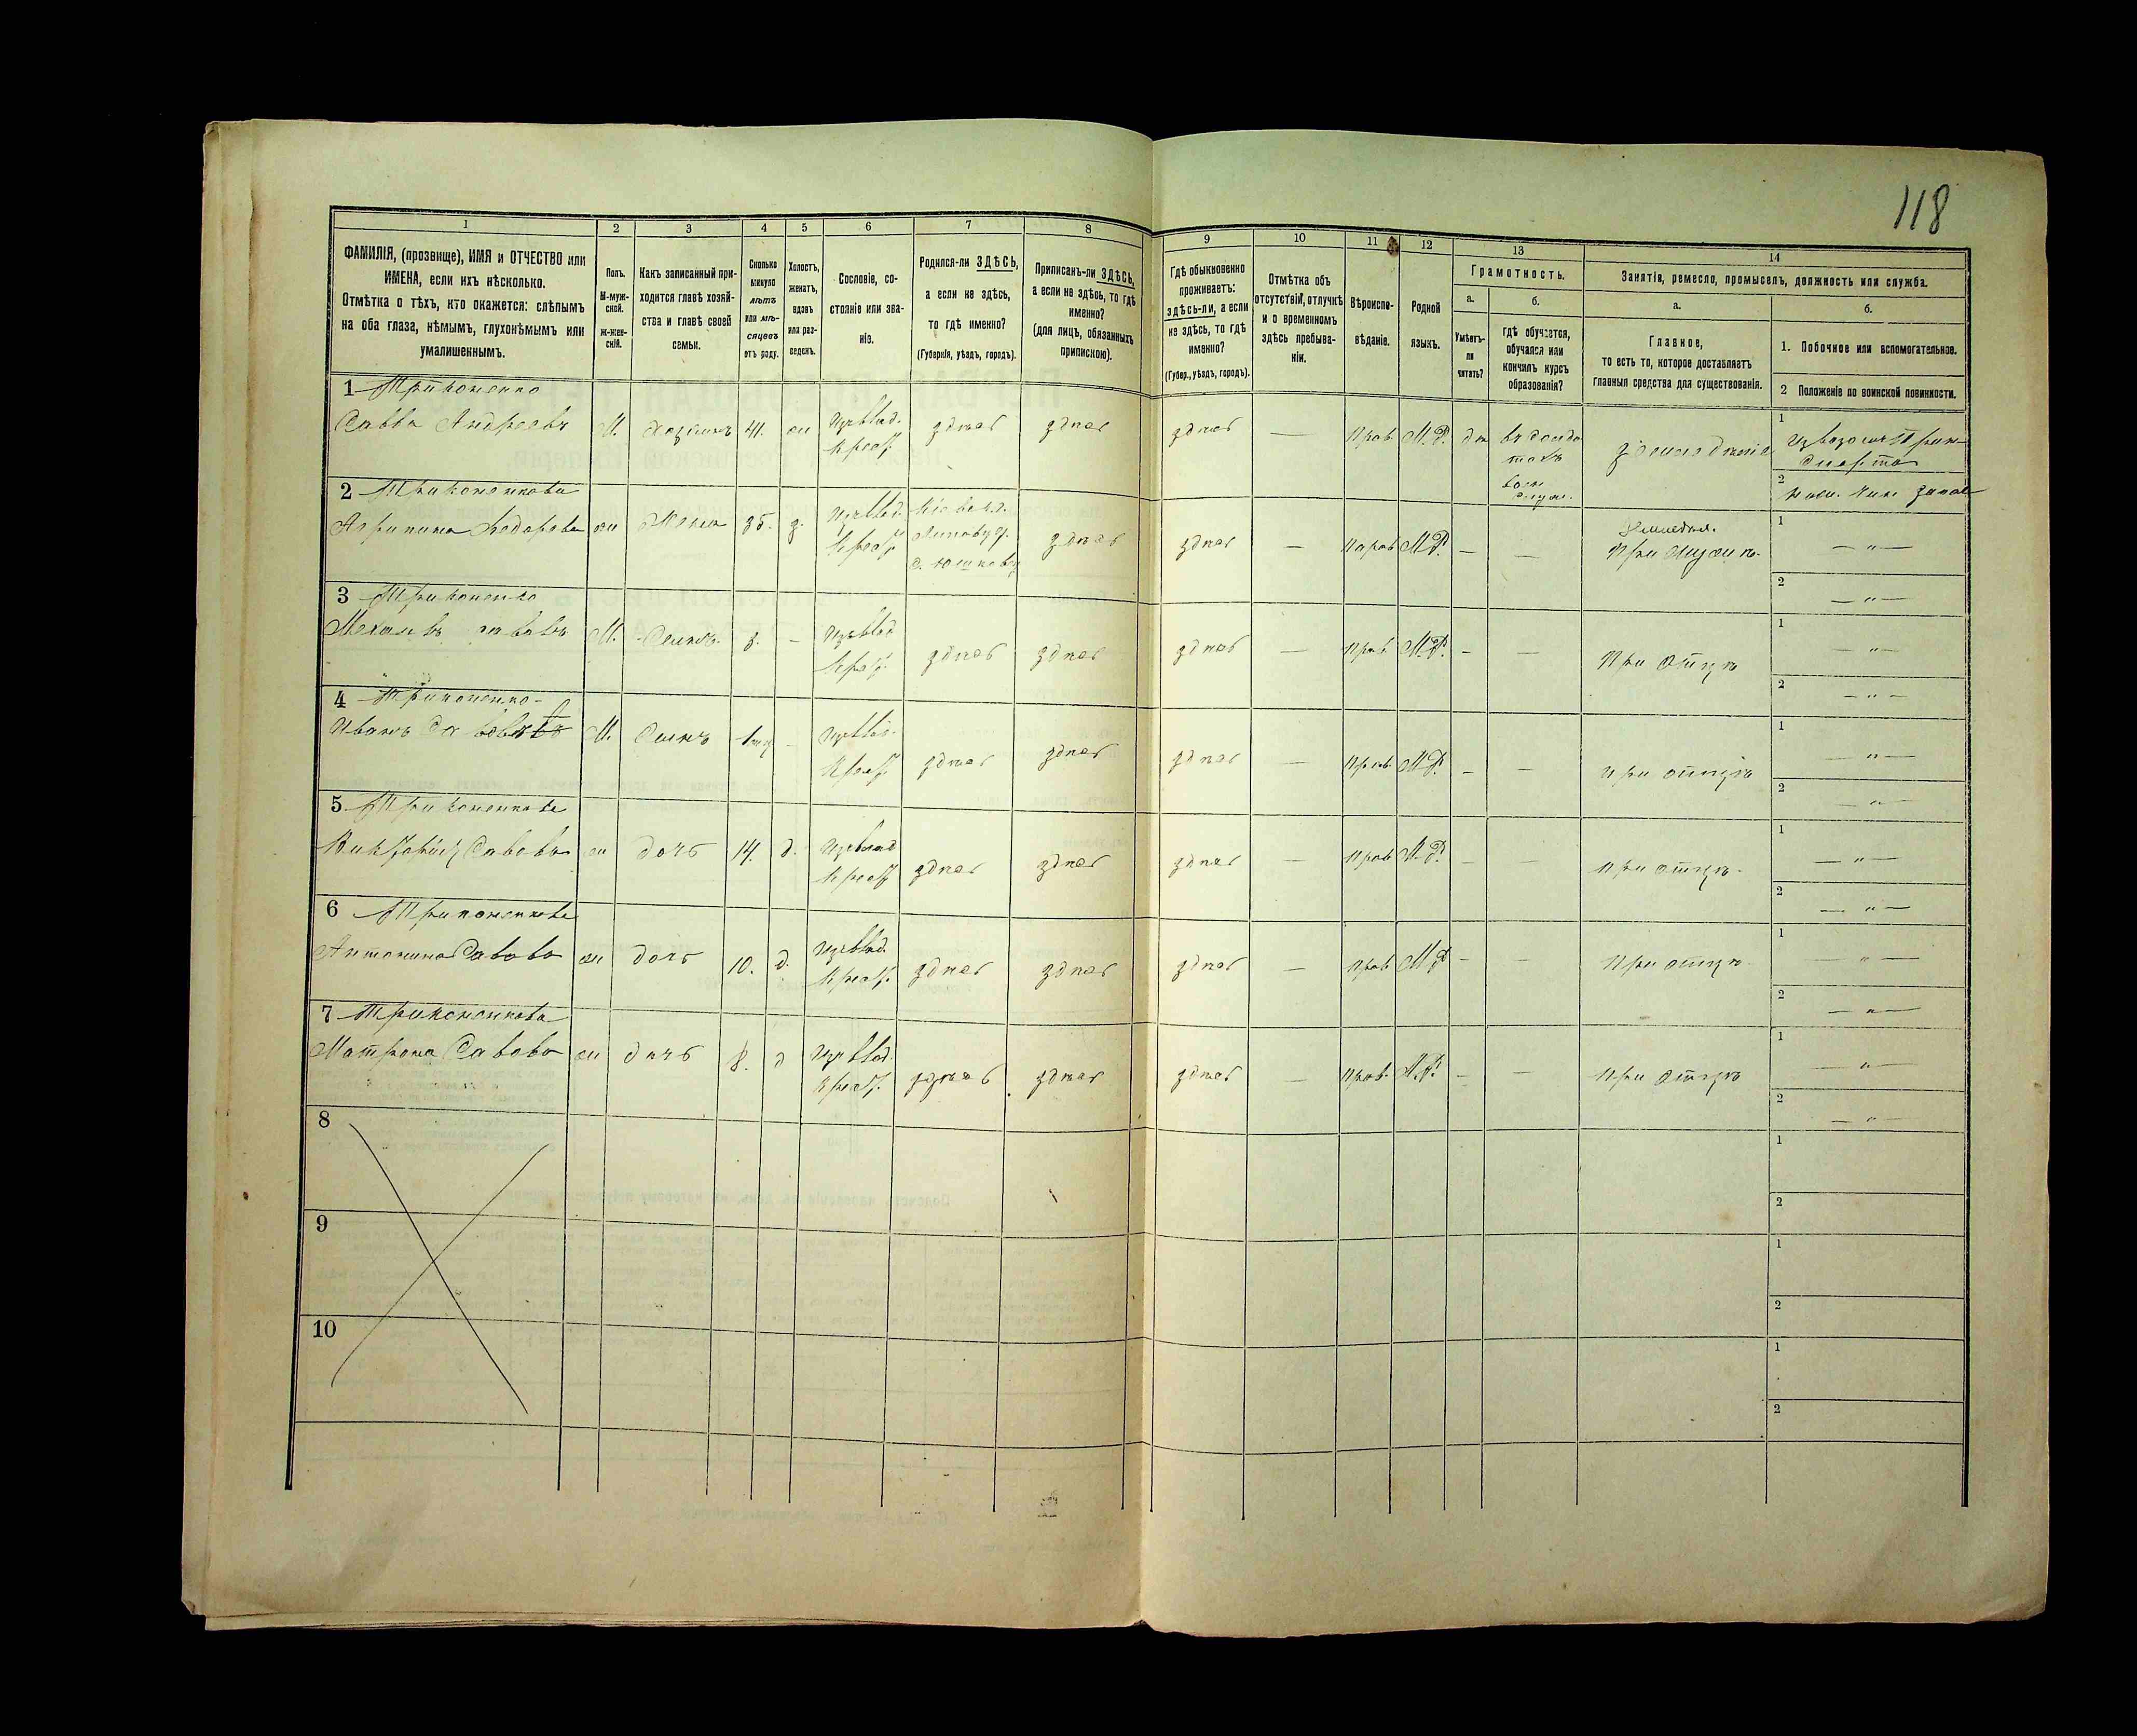 118
1
2
3
4
5
6
7
8
9
10
11
12
13
14
ФАМИЛІЯ, (прозвище), ИМЯ и ОТЧЕСТВО или
ИМЕНА, если ихъ нѣсколько.
Отмѣтка о тѣхъ, кто окажется: слѣпымъ
на оба глаза, нѣмымъ, глухонѣмымъ или
умалишеннымъ.
Полъ.
М-муж-
ской.
Ж-жен-
скій.
Какъ записанный при-
ходится главѣ хозяй-
ства и главѣ своей
семьи.
Сколько
минуло
лѣтъ
или мѣ-
сяцевъ
отъ роду.
Холостъ,
женатъ,
вдовъ
или раз-
веденъ.
Сословіе, со-
стояніе или зва-
ніе.
Родился-ли ЗДѢСЬ,
а если не здѣсь,
то гдѣ именно?
(Губернія, уѣздъ, городъ).
Приписанъ-ли ЗДѢСЬ,
а если не здѣсь, то гдѣ
именно?
(для лицъ, обязанныхъ
припискою).
Гдѣ обыкновенно
проживаетъ:
здѣсь-ли, а если
не здѣсь, то гдѣ
именно?
(Губер., уѣздъ, городъ).
Отмѣтка объ
отсутствіи, отлучкѣ
и о временномъ
здѣсь пребыва-
ніи.
Вѣроиспо-
вѣданіе.
Родной
языкъ.
Грамотность.
а.
Умѣетъ-
ли
читать?
б.
гдѣ обучается,
обучался или
кончилъ курсъ
образованія?
Занятія, ремесло, промыселъ, должность или служба.
а.
Главное,
то есть то, которое доставляетъ
главныя средства для существованія.
б.
1. Побочное или вспомогательное.
2 Положеніе по воинской повинности.
1
Савва Андреевъ М. Хозяинъ 41. ж Крест. здѣсь здѣсь здѣсь — Прав М.Р. да въ солда
тахъ земледѣліе
1
2
2
Федорова ж Жена 35. з. Крест. Кіевск.
Липовец.
здѣсь здѣсь — Прав М.Р. — — при мужѣ.
1 — „ —
2 — „ —
3
М. Сынъ 3. — Крест. здѣсь здѣсь здѣсь — Прав М.Р. — — При отцѣ
1 — „ —
2 — „ —
4
Иванъ М. Сынъ - Крест. здѣсь здѣсь здѣсь — Прав М.Р. — — при отцѣ
1 — „ —
2 — „ —
5
Савова ж дочь 14. д. Крест здѣсь здѣсь здѣсь — Прав М.Р. — — при отцѣ.
1 — „ —
2 — „ —
6
Антонина Савова ж дочь 10. д. Крест. здѣсь здѣсь здѣсь — Прав М.Р. — — При отцѣ.
1 — „ —
2 — „ —
7
Матрона Савова ж дочь 8. д Крест. здѣсь здѣсь здѣсь — Прав. М.Р. — — При отцѣ
1 — „ —
2 — „ —
8
1
2
9
1
2
10
1
2